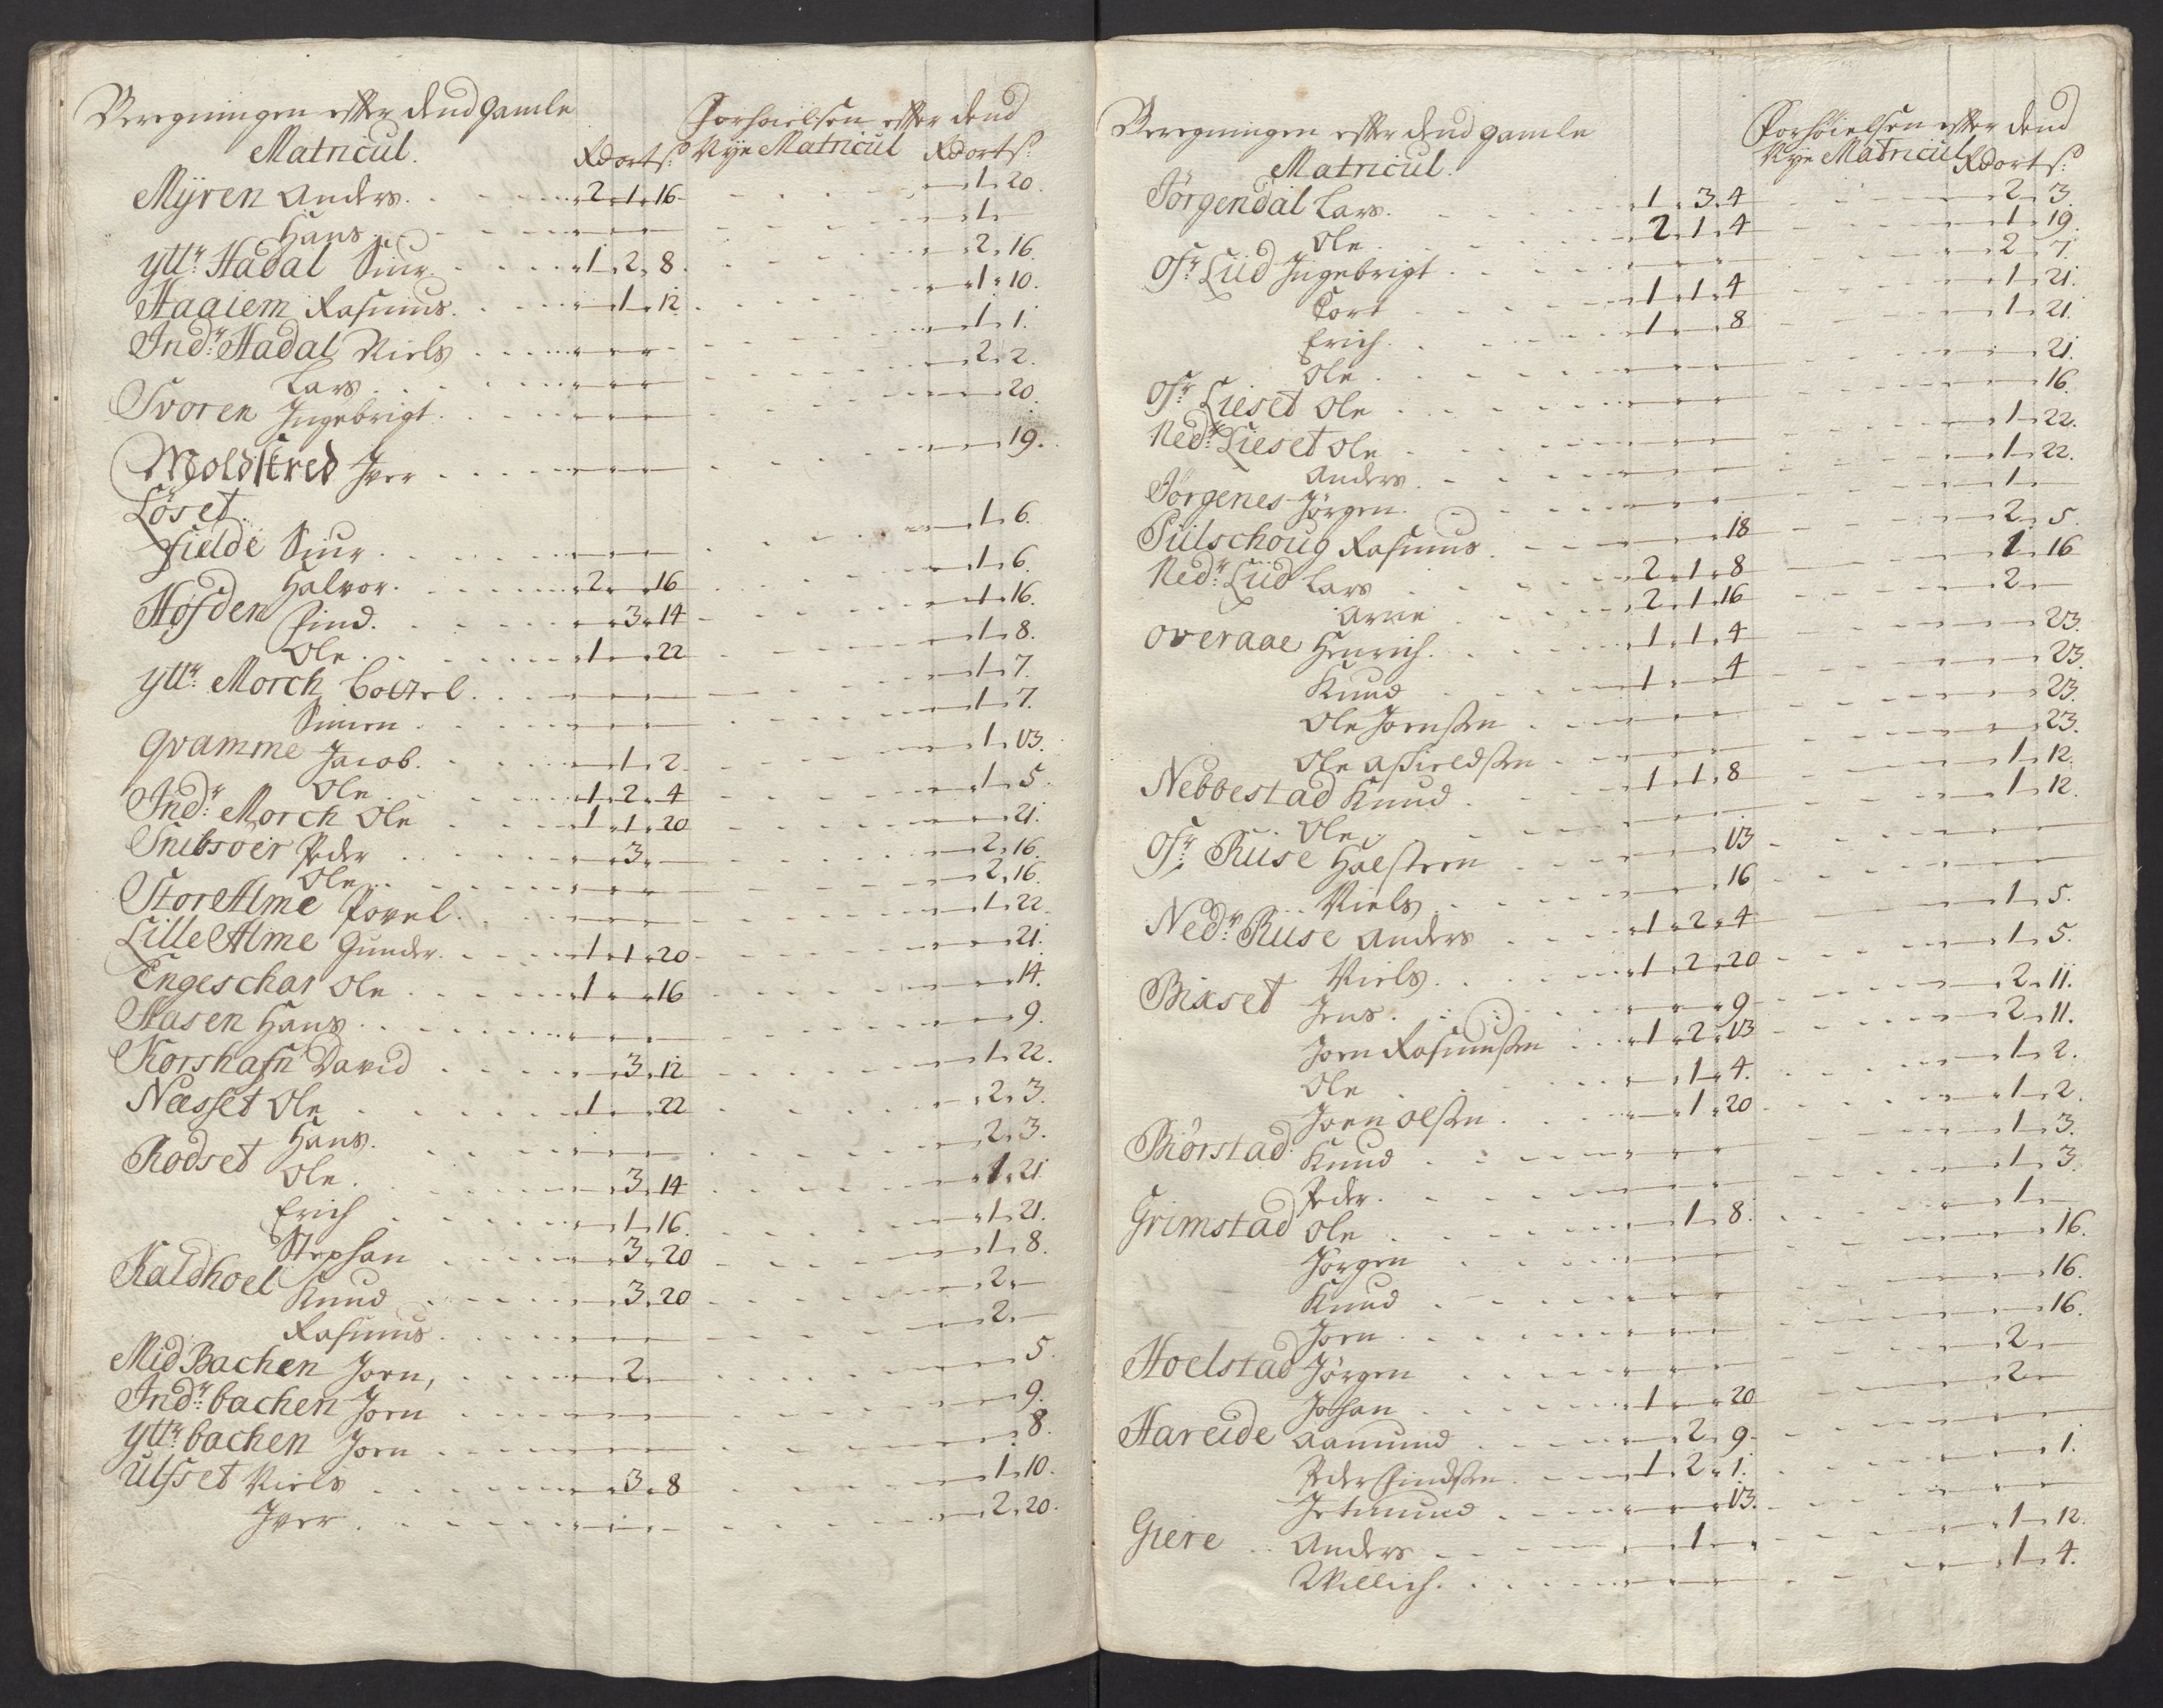 Beregningen efter dend gamle Forhøielsen efter dend
Matricul. Rd ort s: Nye Matricul Rd ort s:
Myren Anders 2 1 16 1 20.
Hans 1
ytt:r Hadal Siur 1 2 8. 2 16
Haaiem Rasmus 1 12. 1 10.
Ind:r Hadal Niels 1 1.
Lars 2 2.
Svoren Ingebrigt 20.
Moldskred Iver 19.
Löset.
Fielde Siur 1 6.
Halvor. 2 16 1 6.
Hofden Find. 3 14 1 16.
Ole 1 22 1 8.
ytt:r Morch Bottel 1 7.
Simen 1 7.
Qvamme Jacob. 1 2 1 13.
Ole 1 2 4 1 5.
Ind:r Morch Ole 1 1 20 21.
Snibsöer Peder 3 2 16.
Ole 2 16.
Stor Alme Povel 1 22.
Lille Alme Gunder. 1 1 20 21.
Engeschar Ole 1 16 14.
Aasen Hans 9.
Korshafn David 3 12 1 22.
Næsset Ole 1 22 2 3.
Hans. 2 3.
Rodset Ole. 3 14 1 21
Erich 1 16. 1 21.
Stephan 3 20 1 8.
Kaldhoel Knud 3 20 2
Rasmus 2
Mid Bachen Joen, 2 5.
Ind:r bachen Joen 9.
ytt:r bachen Joen 8.
Ulfset Niels 3 8 1 10.
Iver 2 20.
Beregningen efter dend gamle Forhöielsen efter dend
Matricul. Nye Matricul Rd ort s:
Jörgendal Lars. 1 3 4 2 3.
Ole 2 1 4 1 19.
Of:r Liid Ingebrigt 2 7.
Tort 1 1 4 1 21.
Erich 1 8 1 21.
Ole 21.
Of:r Lieset Ole 16.
Ned:r Lieset Ole 1 22.
Anders 1 22.
Jörgenes Jörgen 1
Pülschoug Rasmus 18 2 5.
Ned:r Liid Lars 2 1 8 1 16
Arne 2 1 16 2
Overaae Henrich. 1 1 4 23.
Knud 1 4 23.
Ole Joensen 23.
Ole Asfieldsen 23.
Nebbestad Knud 1 1 8 1 12.
Ole 1 12.
Of:r Riise Halsteen 13
Niels 16
Ned:r Riise Anders 1 2 4 1 5.
Niels 1 2 20 1 5.
Bixset Jens 9 2 11.
Joen Rasmusen 1 2 13 2 11.
Ole 1 4. 1 2.
Joen Olsen 1 20 1 2.
Biörstad Knud 1 3.
Peder 1 3.
Grimstad Ole 1 8. 1
Jörgen 16.
Knud 16.
Joen 16.
Hoelstad Jörgen 2
Johan 1 20 2
Hareide Aamund 2 9
Peder Findsen 1 2 1. 1.
Jetmund 13.
Giere Anders 1 1 12.
Willich. 1 4.